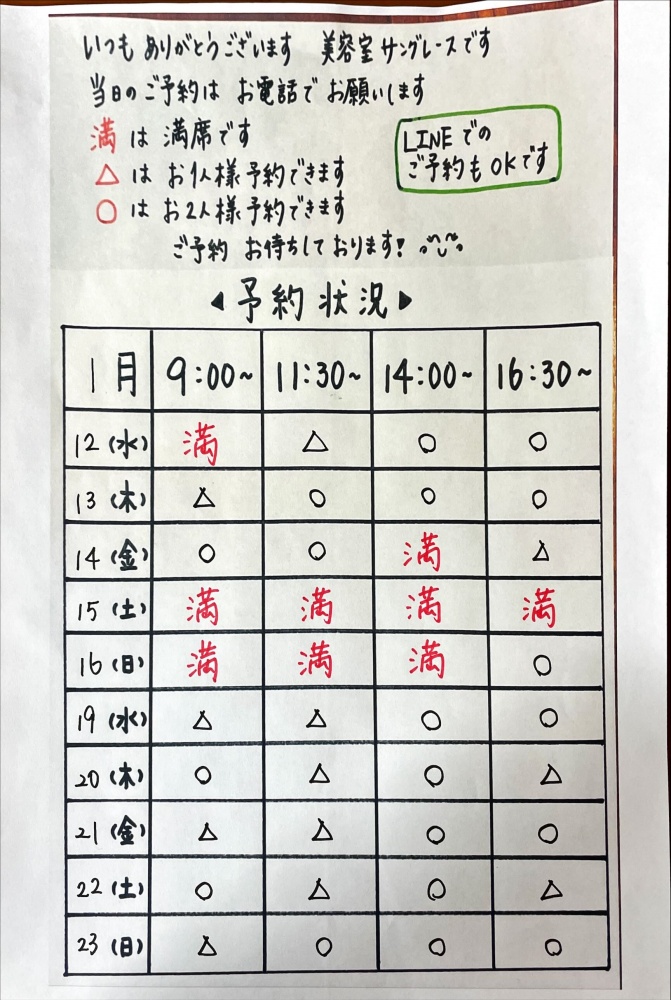 いつも ありがとうございます 美容室サングレースです
当日のご予約は お電話で お願いします
満 は 満席です
△ は お1人様予約できます
○ は お2人様予約できます
ご予約 お待ちしております!
LINEでの
ご予約もOKです
◀予約状況▶
1月 9:00~ 11:30~ 14:00~ 16:30~
12(水) 満 △ ○ ○
13(木) △ ○ ○ ○
14(金) ○ ○ 満 △
15(土) 満 満 満 満
16(日) 満 満 満 ○
19(水) △ △ ○ ○
20(木) ○ △ ○ △
21(金) △ △ ○ ○
22(土) ○ △ ○ △
23(日) △ ○ ○ ○